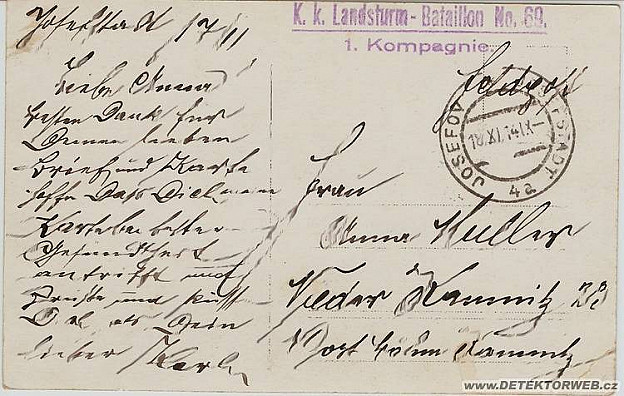 Josefstadt 17/11
Liebe Anna
besten Dank für
Deinen lieben
Brief und Karte
hoffe Dass Dich meine
Karte bei bester
Gesundheit
antrifft und
Grüsse und küsse
Dich als Dein
lieber Karl
K. k. Landsturm - Bataillon No. 69.
1. Kompagnie.
Feldpost
JOSEFOV 18.XI.14 IX STADT 4a
Frau
Anna Müller
Nieder Kamnitz 33
Post böhm Kamnitz
www.DETEKTORWEB.cz